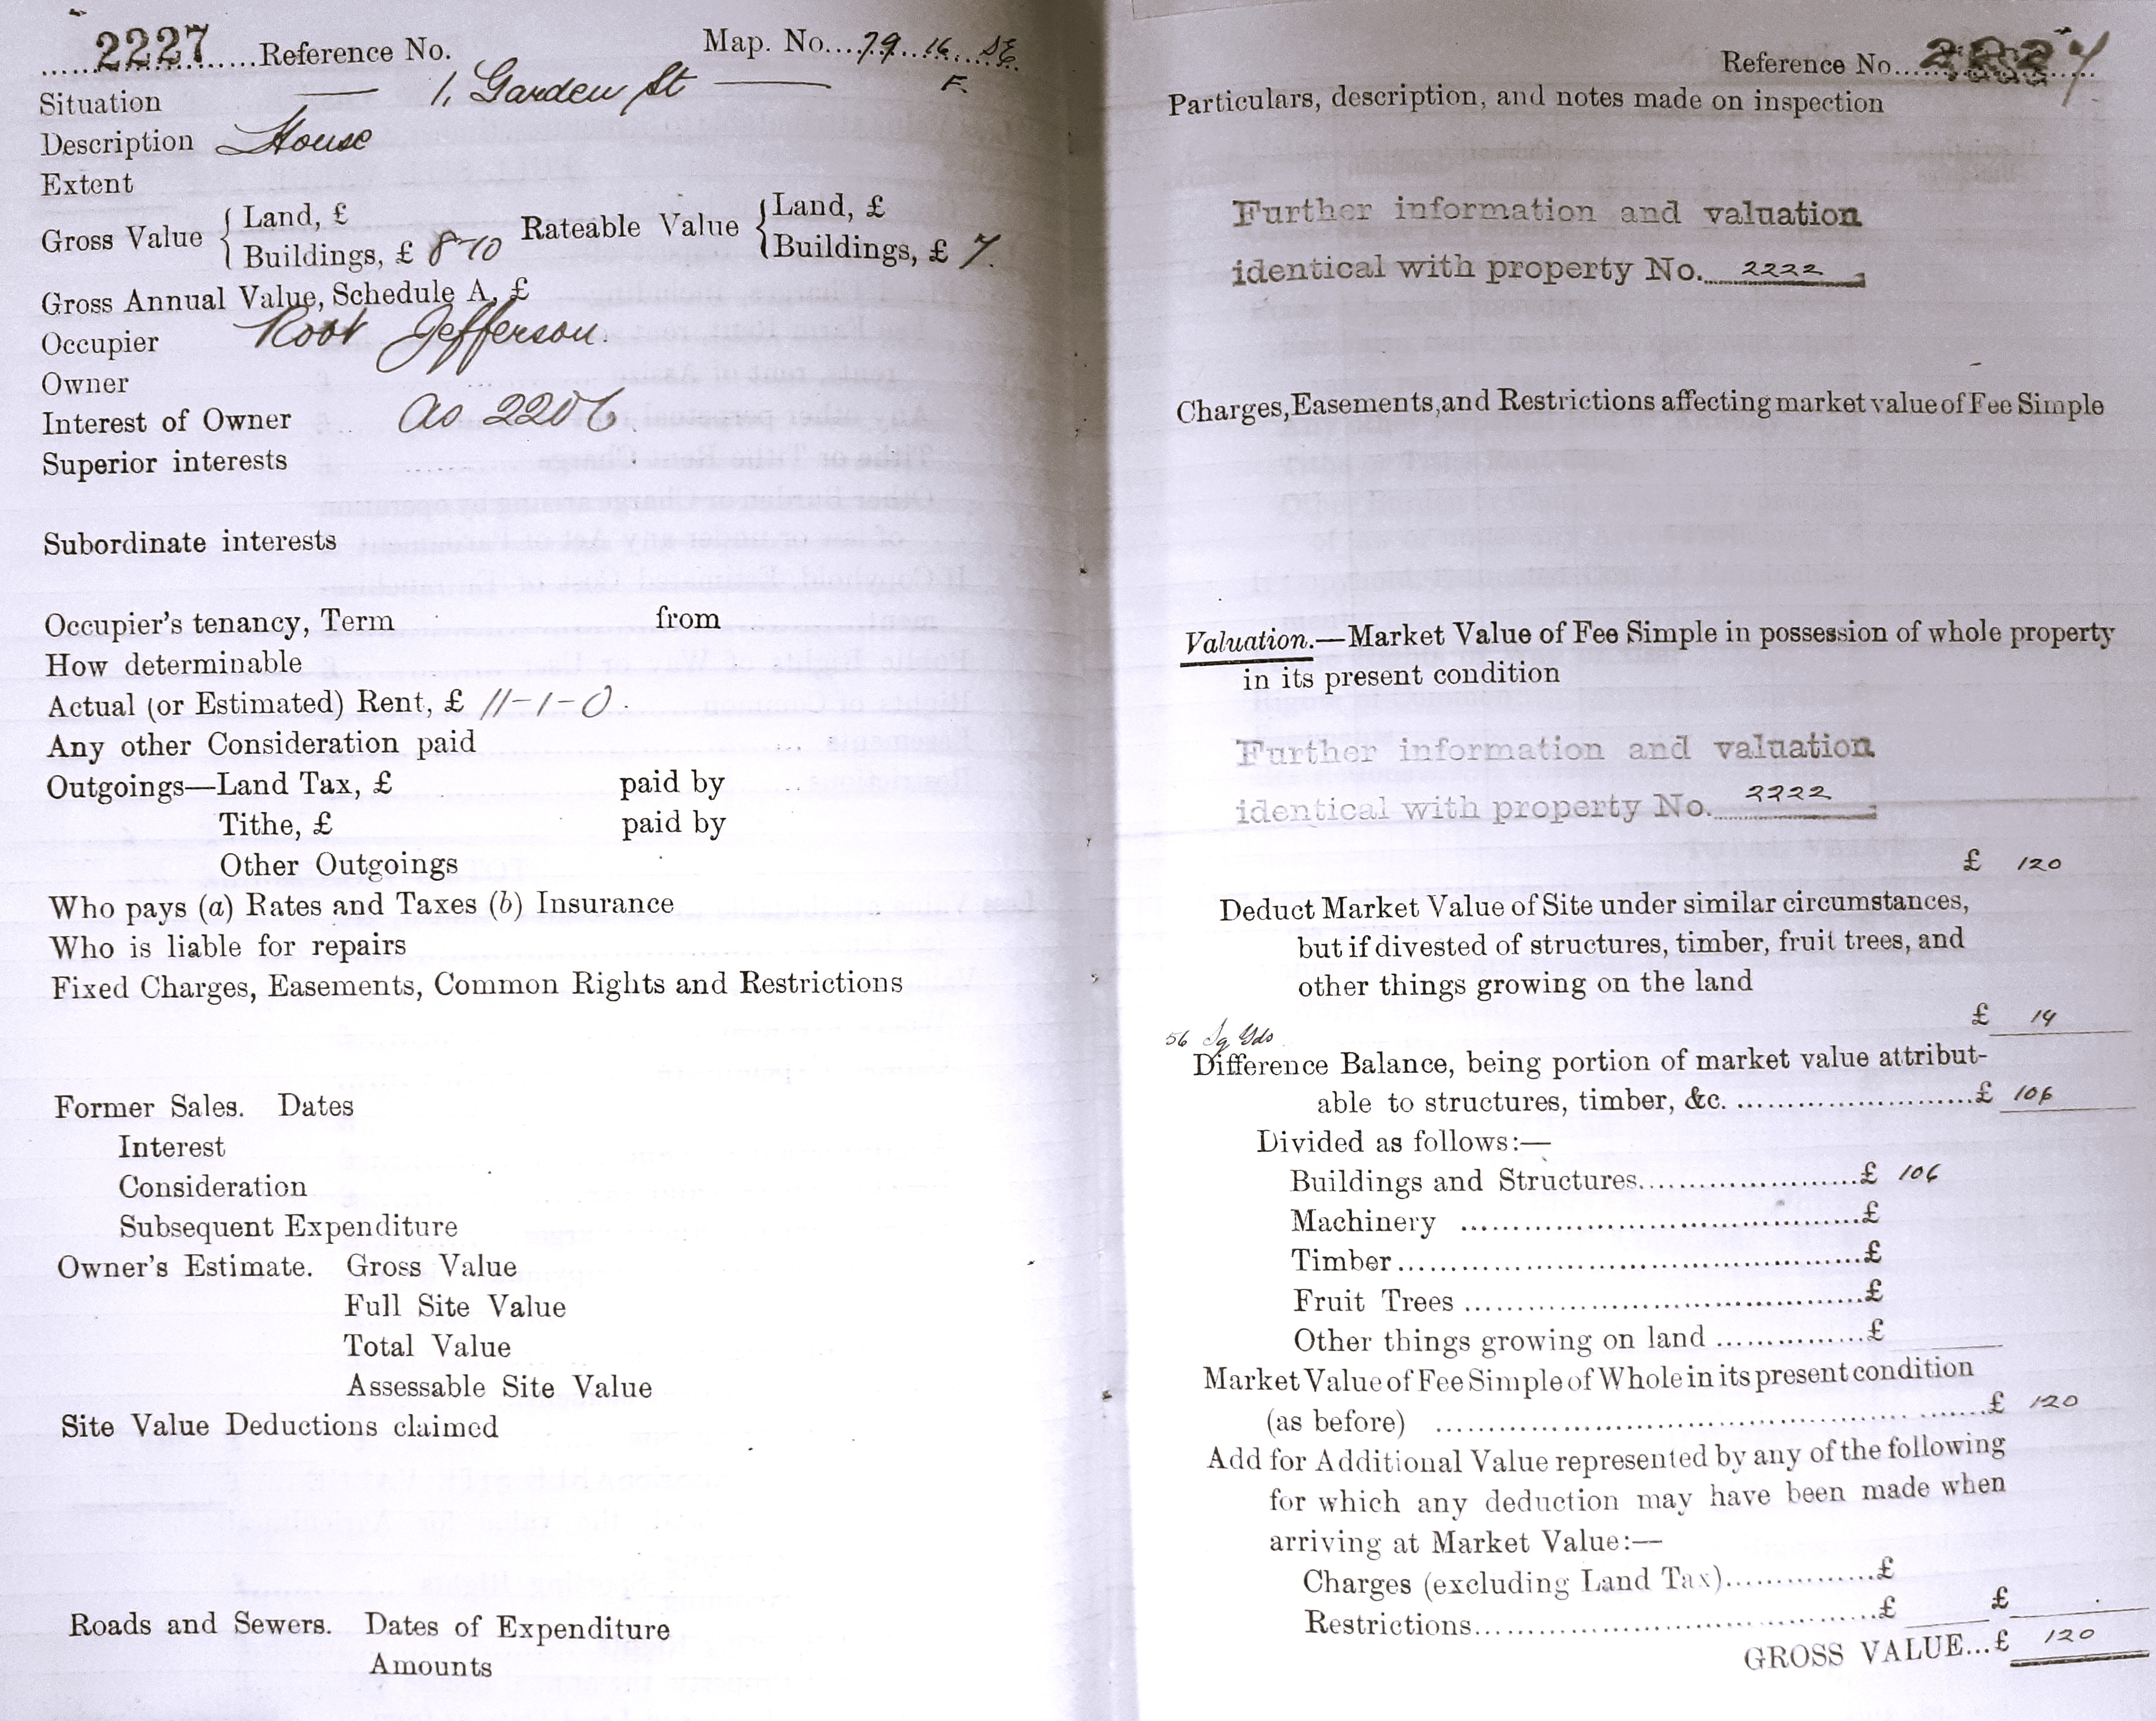 2227 Reference No. Map. No. 79.16. SE.
F.
Situation — 1, Garden St —
Description House
Extent
Gross Value { Land, £ Rateable Value { Land, £
Buildings, £ 8-10 Buildings, £ 7.
Gross Annual Value, Schedule A, £
Occupier Robt Jefferson.
Owner
Interest of Owner as 2206.
Superior interests
Subordinate interests
Occupier's tenancy, Term from
How determinable
Actual (or Estimated) Rent, £ 11-1-0.
Any other Consideration paid
Outgoings—Land Tax, £ paid by
Tithe, £ paid by
Other Outgoings
Who pays (a) Rates and Taxes (b) Insurance
Who is liable for repairs
Fixed Charges, Easements, Common Rights and Restrictions
Former Sales. Dates
Interest
Consideration
Subsequent Expenditure
Owner's Estimate. Gross Value
Full Site Value
Total Value
Assessable Site Value
Site Value Deductions claimed
Roads and Sewers. Dates of Expenditure
Amounts
Reference No. 2227
Particulars, description, and notes made on inspection
Further information and valuation
identical with property No. 2222
Charges, Easements, and Restrictions affecting market value of Fee Simple
Valuation.—Market Value of Fee Simple in possession of whole property
in its present condition
Further information and valuation
identical with property No. 2222
£ 120
Deduct Market Value of Site under similar circumstances,
but if divested of structures, timber, fruit trees, and
other things growing on the land
£ 14
56 Sq Yds
Difference Balance, being portion of market value attribut-
able to structures, timber, &c. £ 106
Divided as follows:—
Buildings and Structures £ 106
Machinery £
Timber £
Fruit Trees £
Other things growing on land £
Market Value of Fee Simple of Whole in its present condition
(as before) £ 120
Add for Additional Value represented by any of the following
for which any deduction may have been made when
arriving at Market Value:—
Charges (excluding Land Tax) £
Restrictions £ £
GROSS VALUE... £ 120